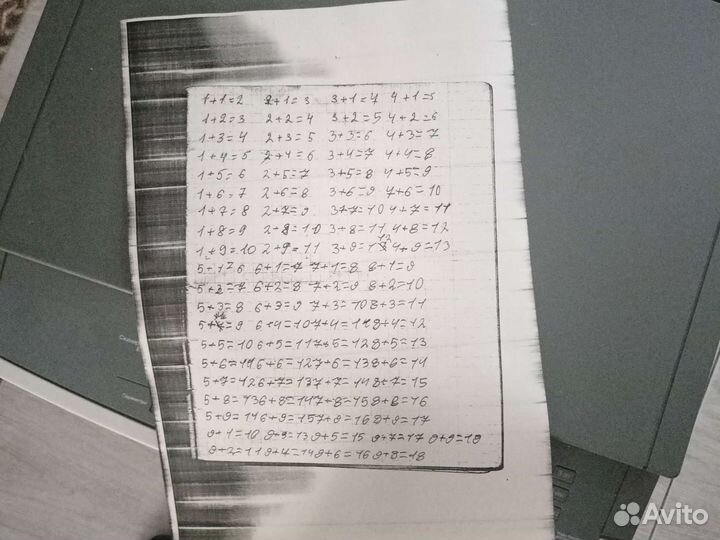 1+1=2 2+1=3 3+1=4 4+1=5
1+2=3 2+2=4 3+2=5 4+2=6
1+3=4 2+3=5 3+3=6 4+3=7
1+4=5 2+4=6 3+4=7 4+4=8
1+5=6 2+5=7 3+5=8 4+5=9
1+6=7 2+6=8 3+6=9 4+6=10
1+7=8 2+7=9 3+7=10 4+7=11
1+8=9 2+8=10 3+8=11 4+8=12
1+9=10 2+9=11 3+9=12 4+9=13
5+1=6 6+1=7 7+1=8 8+1=9
5+2=7 6+2=8 7+2=9 8+2=10
5+3=8 6+3=9 7+3=10 8+3=11
5+4=9 6+4=10 7+4=11 8+4=12
5+5=10 6+5=11 7+5=12 8+5=13
5+6=11 6+6=12 7+6=13 8+6=14
5+7=12 6+7=13 7+7=14 8+7=15
5+8=13 6+8=14 7+8=15 8+8=16
5+9=14 6+9=15 7+9=16 8+9=17
9+1=10 9+3=13 9+5=15 9+7=17 9+9=18
9+2=11 9+4=14 9+6=16 9+8=18
Avito